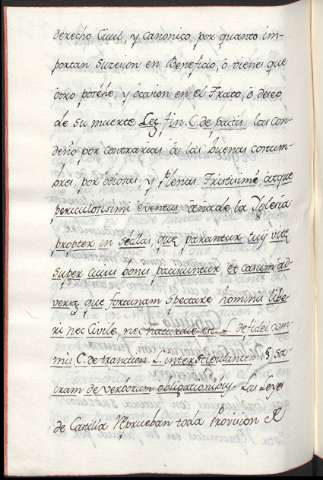 derecho Ciuil y Canonico, por quanto im-
portan sucesion en Beneficio, ô vienes que
otro poseê, y ocasion en el Trato, ô deseo
de su muerte Ley fin. C. de pactis las con-
denò por contrarias â las buenas costum-
bres, por odiosas, y plenas Tristisimi atque
periculosissimi eventus donde la Yglesia
propter in stellas, que parantur
super Cuius bonis paciscuntur et
que fortunam spectare hominis libe-
ri nec Civile, nec naturale est L. de fidei com-
mis C. de transaction. L. inter stipulantem §. Sa-
cram de verborum obligationibus. Las Leyes
de Castilla reprueban toda Provision